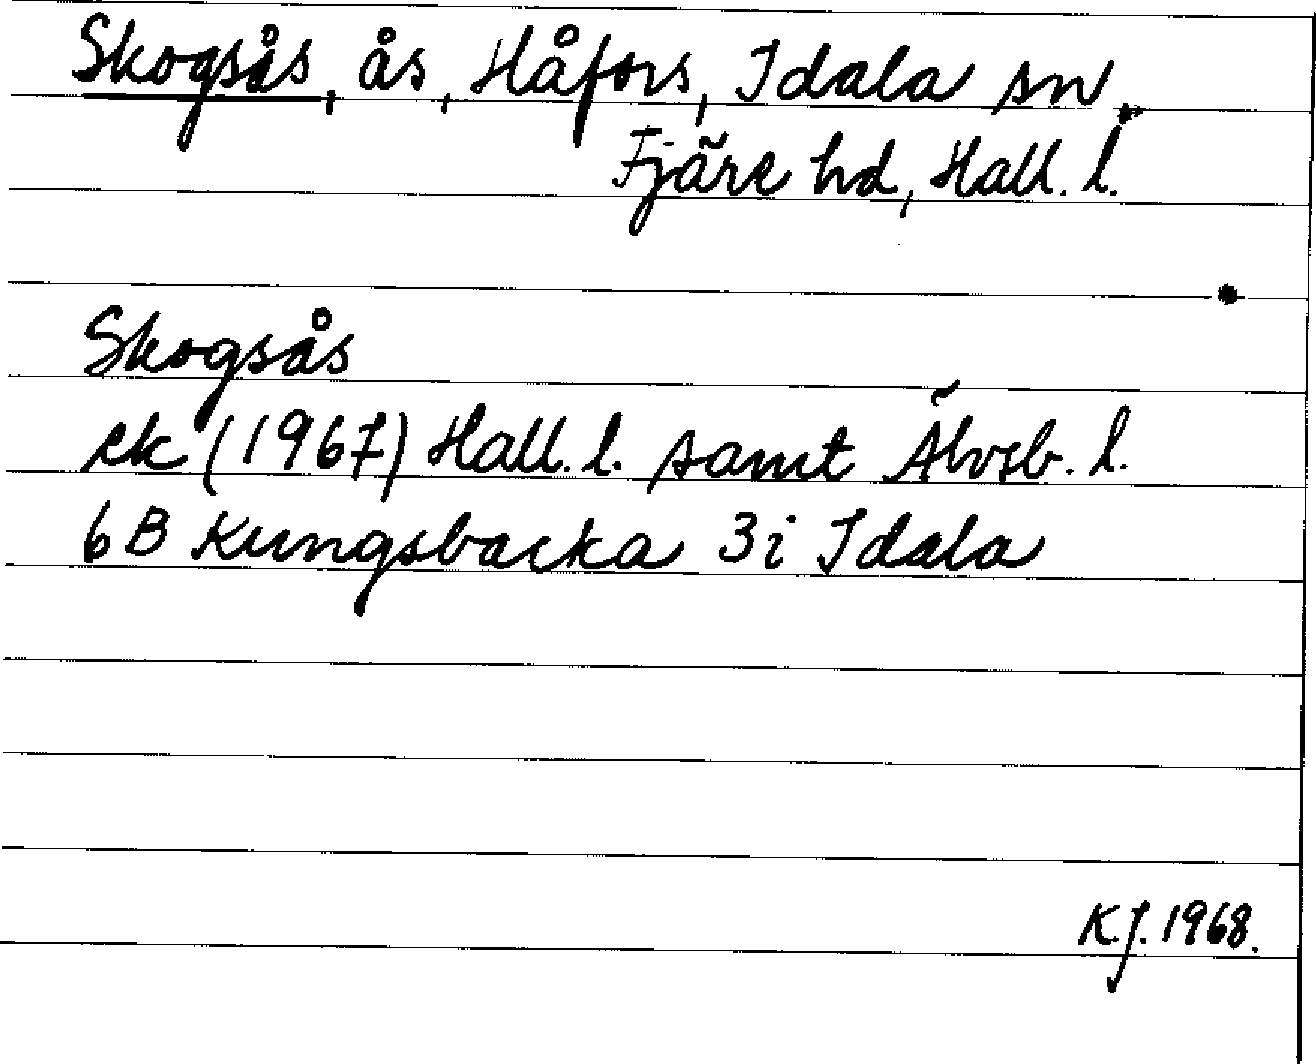 Skogsås, ås, Håfors, Idala sn,
Fjäre hd, Hall. l.
Skogsås
ek (1967) Hall. l. samt Älvsb. l.
6B Kungsbacka 3i Idala
K.J. 1968.